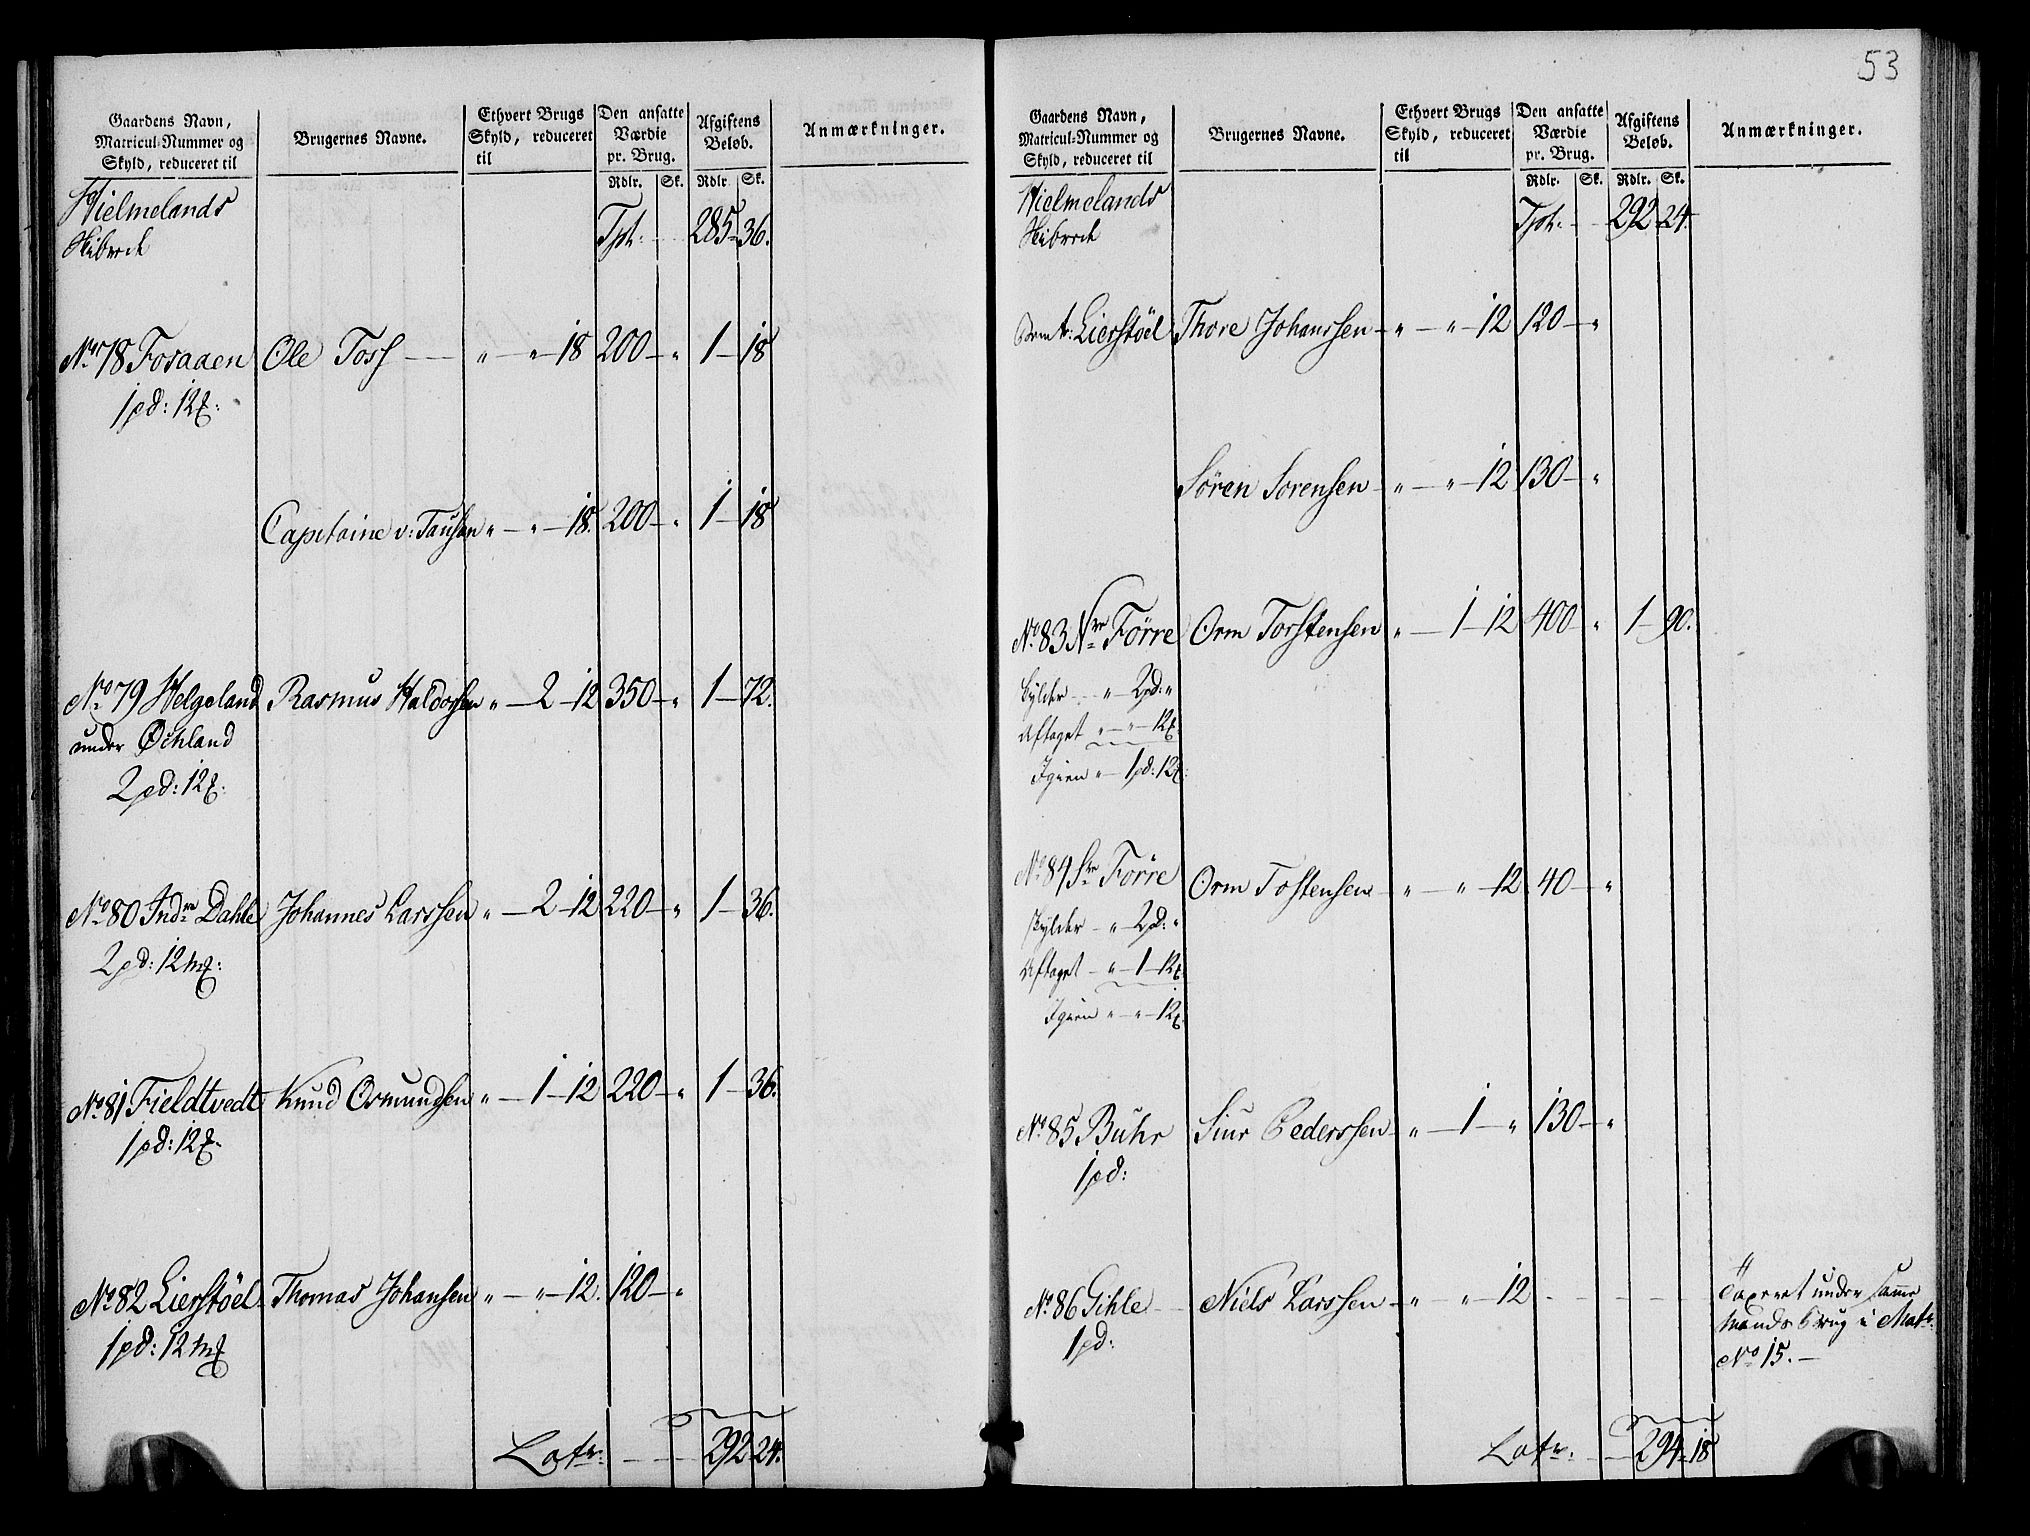 53
Gaardens Navn, Matricul-Nummer og Skyld, reduceret til | Brugernes Navne. | Ethvert Brugs Skyld, reduceret til | Den ansatte Værdie pr. Brug. | Afgiftens Beløb. | Anmærkninger.
Rdlr. | Sk. | Rdlr. | Sk.
Hielmelands Tpt: 285 36.
Skibrede
No 78 Fosaaen Ole Toss — „ — „ — 18 200 — „ 1 — 18
1 pd: 12
Capitaine v: Tausan „ — „ — 18. 200 — „ 1 — 18
No 79 Helgeland Rasmus Haldorssen „ — 2 — 12 350 — „ 1 — 72.
under Øchland
2 pd: 12
No 80 Indre Dahle Johannes Larssen „ — 2 — 12 220 — „ 1 — 36.
2 pd: 12 mg:
No 81 Fieldtvedt Knud Osmundsen „ — 1 — 12 220 — „ 1 — 36.
1 pd: 12
No 82 Lierstöel Thomas Johansen „ — „ — 12. 120 — „
1 pd: 12 mg
Latr: — — 292 24.
Gaardens Navn, Matricul-Nummer og Skyld, reduceret til | Brugernes Navne. | Ethvert Brugs Skyld, reduceret til | Den ansatte Værdie pr. Brug. | Afgiftens Beløb. | Anmærkninger.
Rdlr. | Sk. | Rdlr. | Sk.
Hielmelands Tpt: — 292 24.
Skibrede
Lierstöel Thore Johanssen — „ — „ — 12 120 — „
Sören Sorensen — „ — „ — 12 130 — „
No 83 Nre Förre Orm Torstensen „ — 1 — 12 400 — „ 1 — 90.
Skylder „ 2 pd: „
Aftaget „ — „ — 12
Igien „ — 1 pd: 12
No 84 Sre Förre Orm Tostensen „ — „ — 12 40 — „
Skylder — „ 2 pd: „
Aftaget — „ — 1 — 12
Igien „ — „ — 12
No 85 Buhr Siur Pederssen — „ — 1 — „ 130 — „
1 pd:
No 86 Gihle — Niels Larssen — „ „ — 12 — — — — Taxeret under samme
1 pd: Mands brug i Matr:
No 15. —
Latr: — 294 18